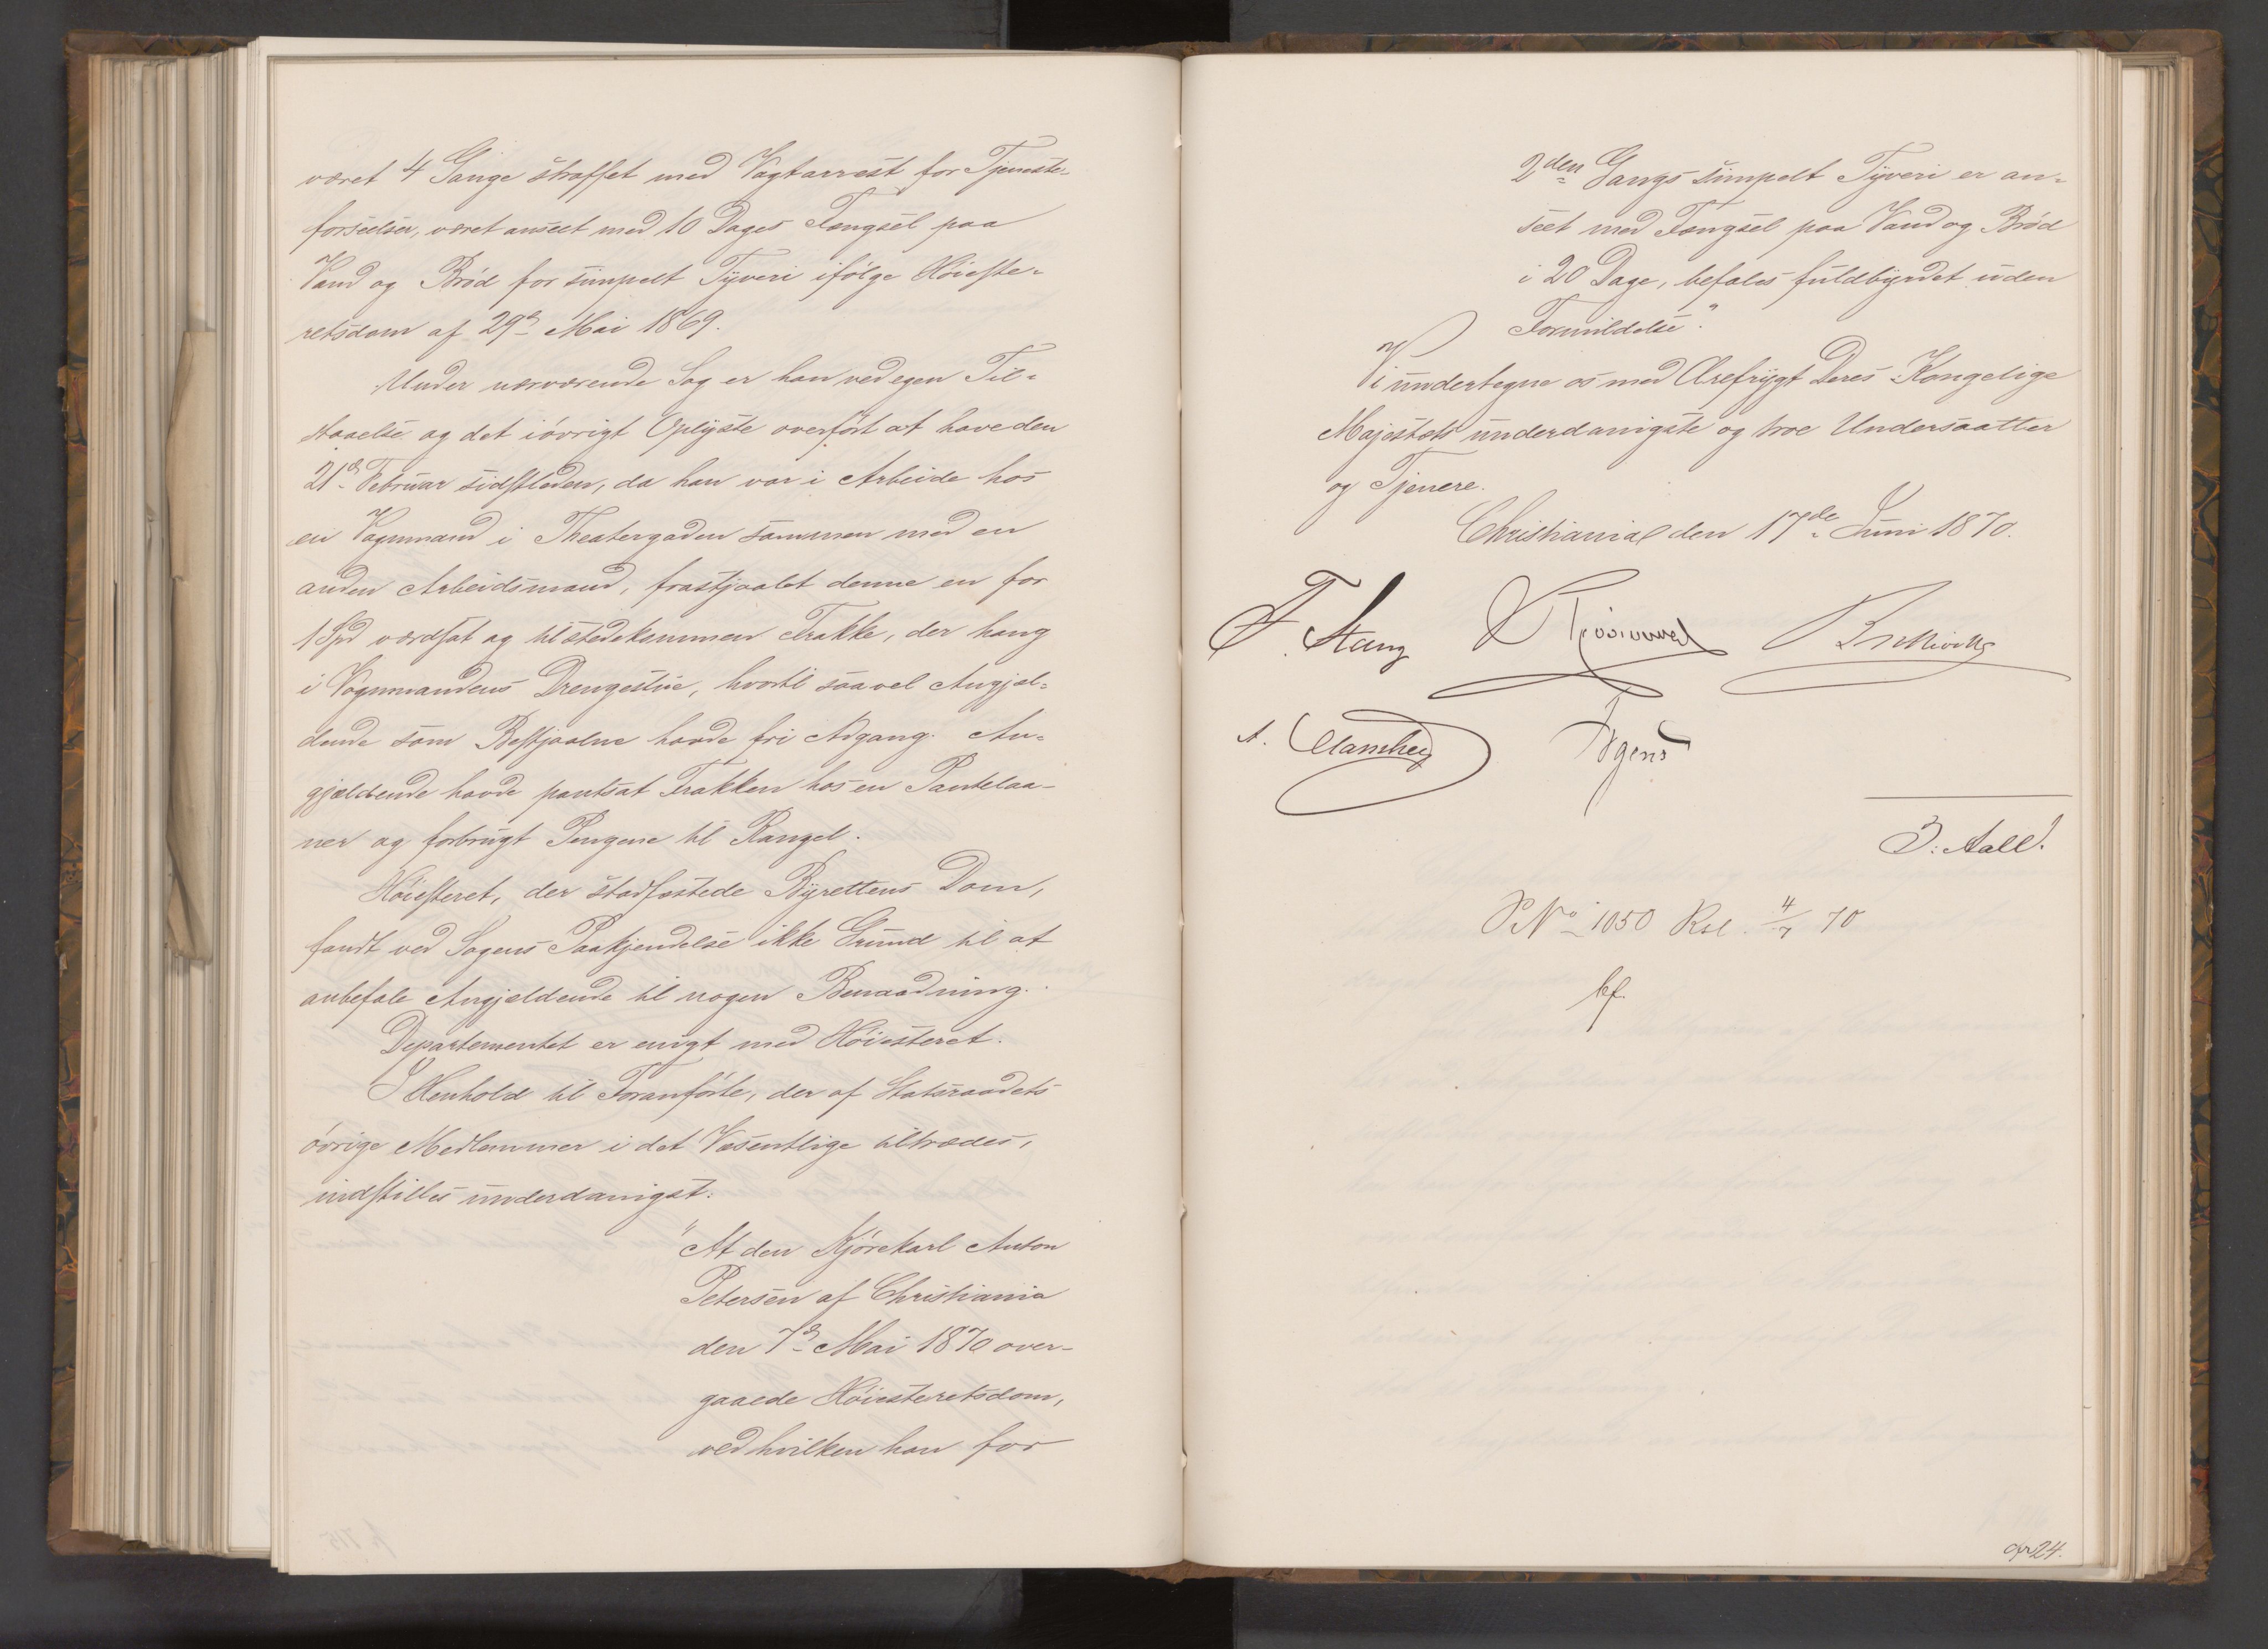 været 4 Gange straffet med Vagtarrest for Tjeneste-
forseelser, været anseet med 10 Dages Fængsel paa
Vand og Brød for simpelt Tyveri ifølge Høieste-
retsdom af 29de Mai 1869.
Under nærværende Sag er han ved egen Til-
staaelse og det iøvrigt Oplyste overført at have den
21de Februar sidstleden, da han var i Arbeide hos
en Vognmand i Theatergaden sammen med en
anden Arbeidsmand, frastjaalet denne en for
1 Spd værdsat og tilstedekommen Frakke, der hang
i Vognmandens Drengestue, hvortil saavel Angjæl-
dende som Bestjaalne havde fri Adgang. An-
gjældende havde pantsat Frakken hos en Pantelaa-
ner og forbrugt Pengene til Rangel.
Høiesteret, der stadfæstede Byrettens Dom,
fandt ved Sagens Paakjendelse ikke Grund til at
anbefale Angjældende til nogen Benaadning.
Departementet er enigt med Høiesteret.
I Henhold til Foranførte, der af Statsraadets
øvrige Medlemmer i det Væsentlige tiltrædes,
indstilles underdanigst:
"At den Kjørekarl Anton
Petersen af Christiania
den 7de Mai 1870 over-
gaaede Høiesteretsdom,
ved hvilken han for
2den Gangs simpelt Tyveri er an-
seet med Fængsel paa Vand og Brød
i 20 Dage, befales fuldbyrdet uden
Formildelse."
Vi undertegne os med Ærefrygt Deres Kongelige
Majestæts underdanigste og troe Undersaatter
og Tjenere.
Christiania den 17de Juni 1870.
F. Stang
Irgens
J. Aall.
No 1050 Rsl. 4/7 70